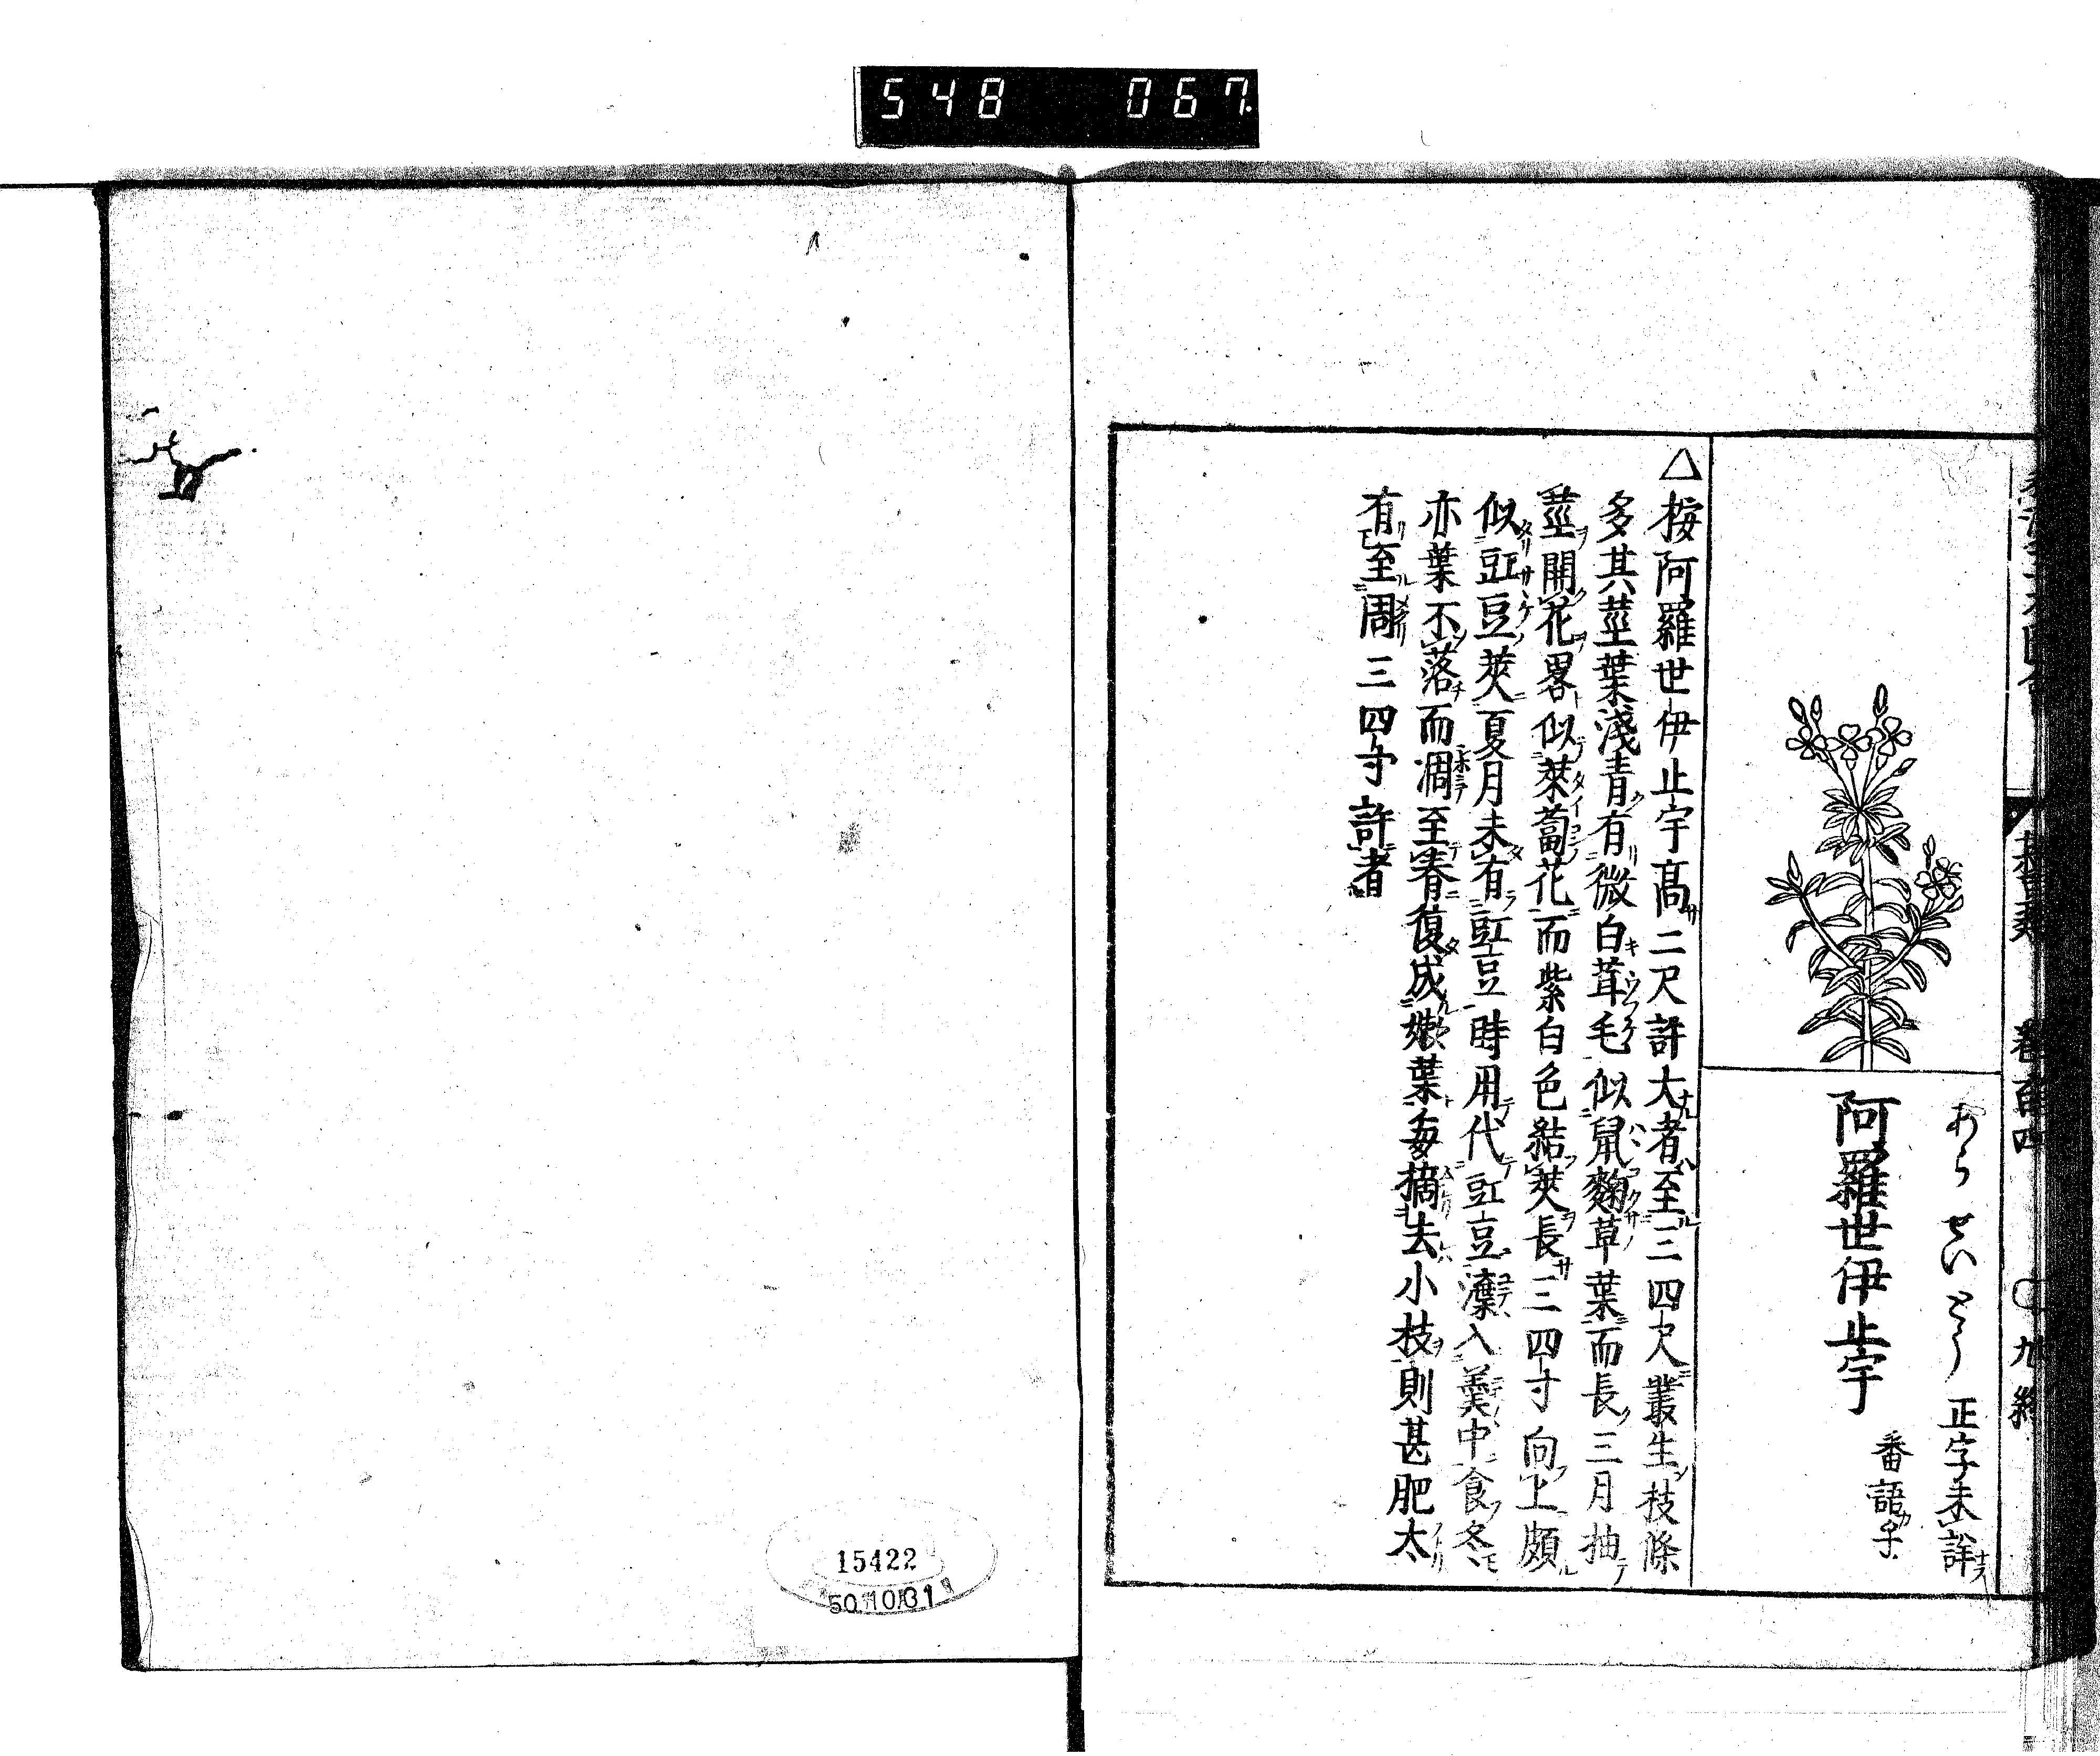 548 067
菽豆類 卷百四 九終
あらせいとう 正字未詳
阿羅世伊止宇
番語乎
△按阿羅世伊止宇髙二尺許大者至三四尺叢生枝條
多其莖葉淺青有微白茸毛似鼠麴草葉而長三月抽
莖開花畧似萊蔔花而紫白色結莢長三四寸向上頗
似豇豆莢夏月未有豇豆時用代豇豆 入羹中食冬
亦葉不落而凋至春復成嫩葉每摘去小枝則甚肥太
有至周三四寸許者
15422
50.10.31